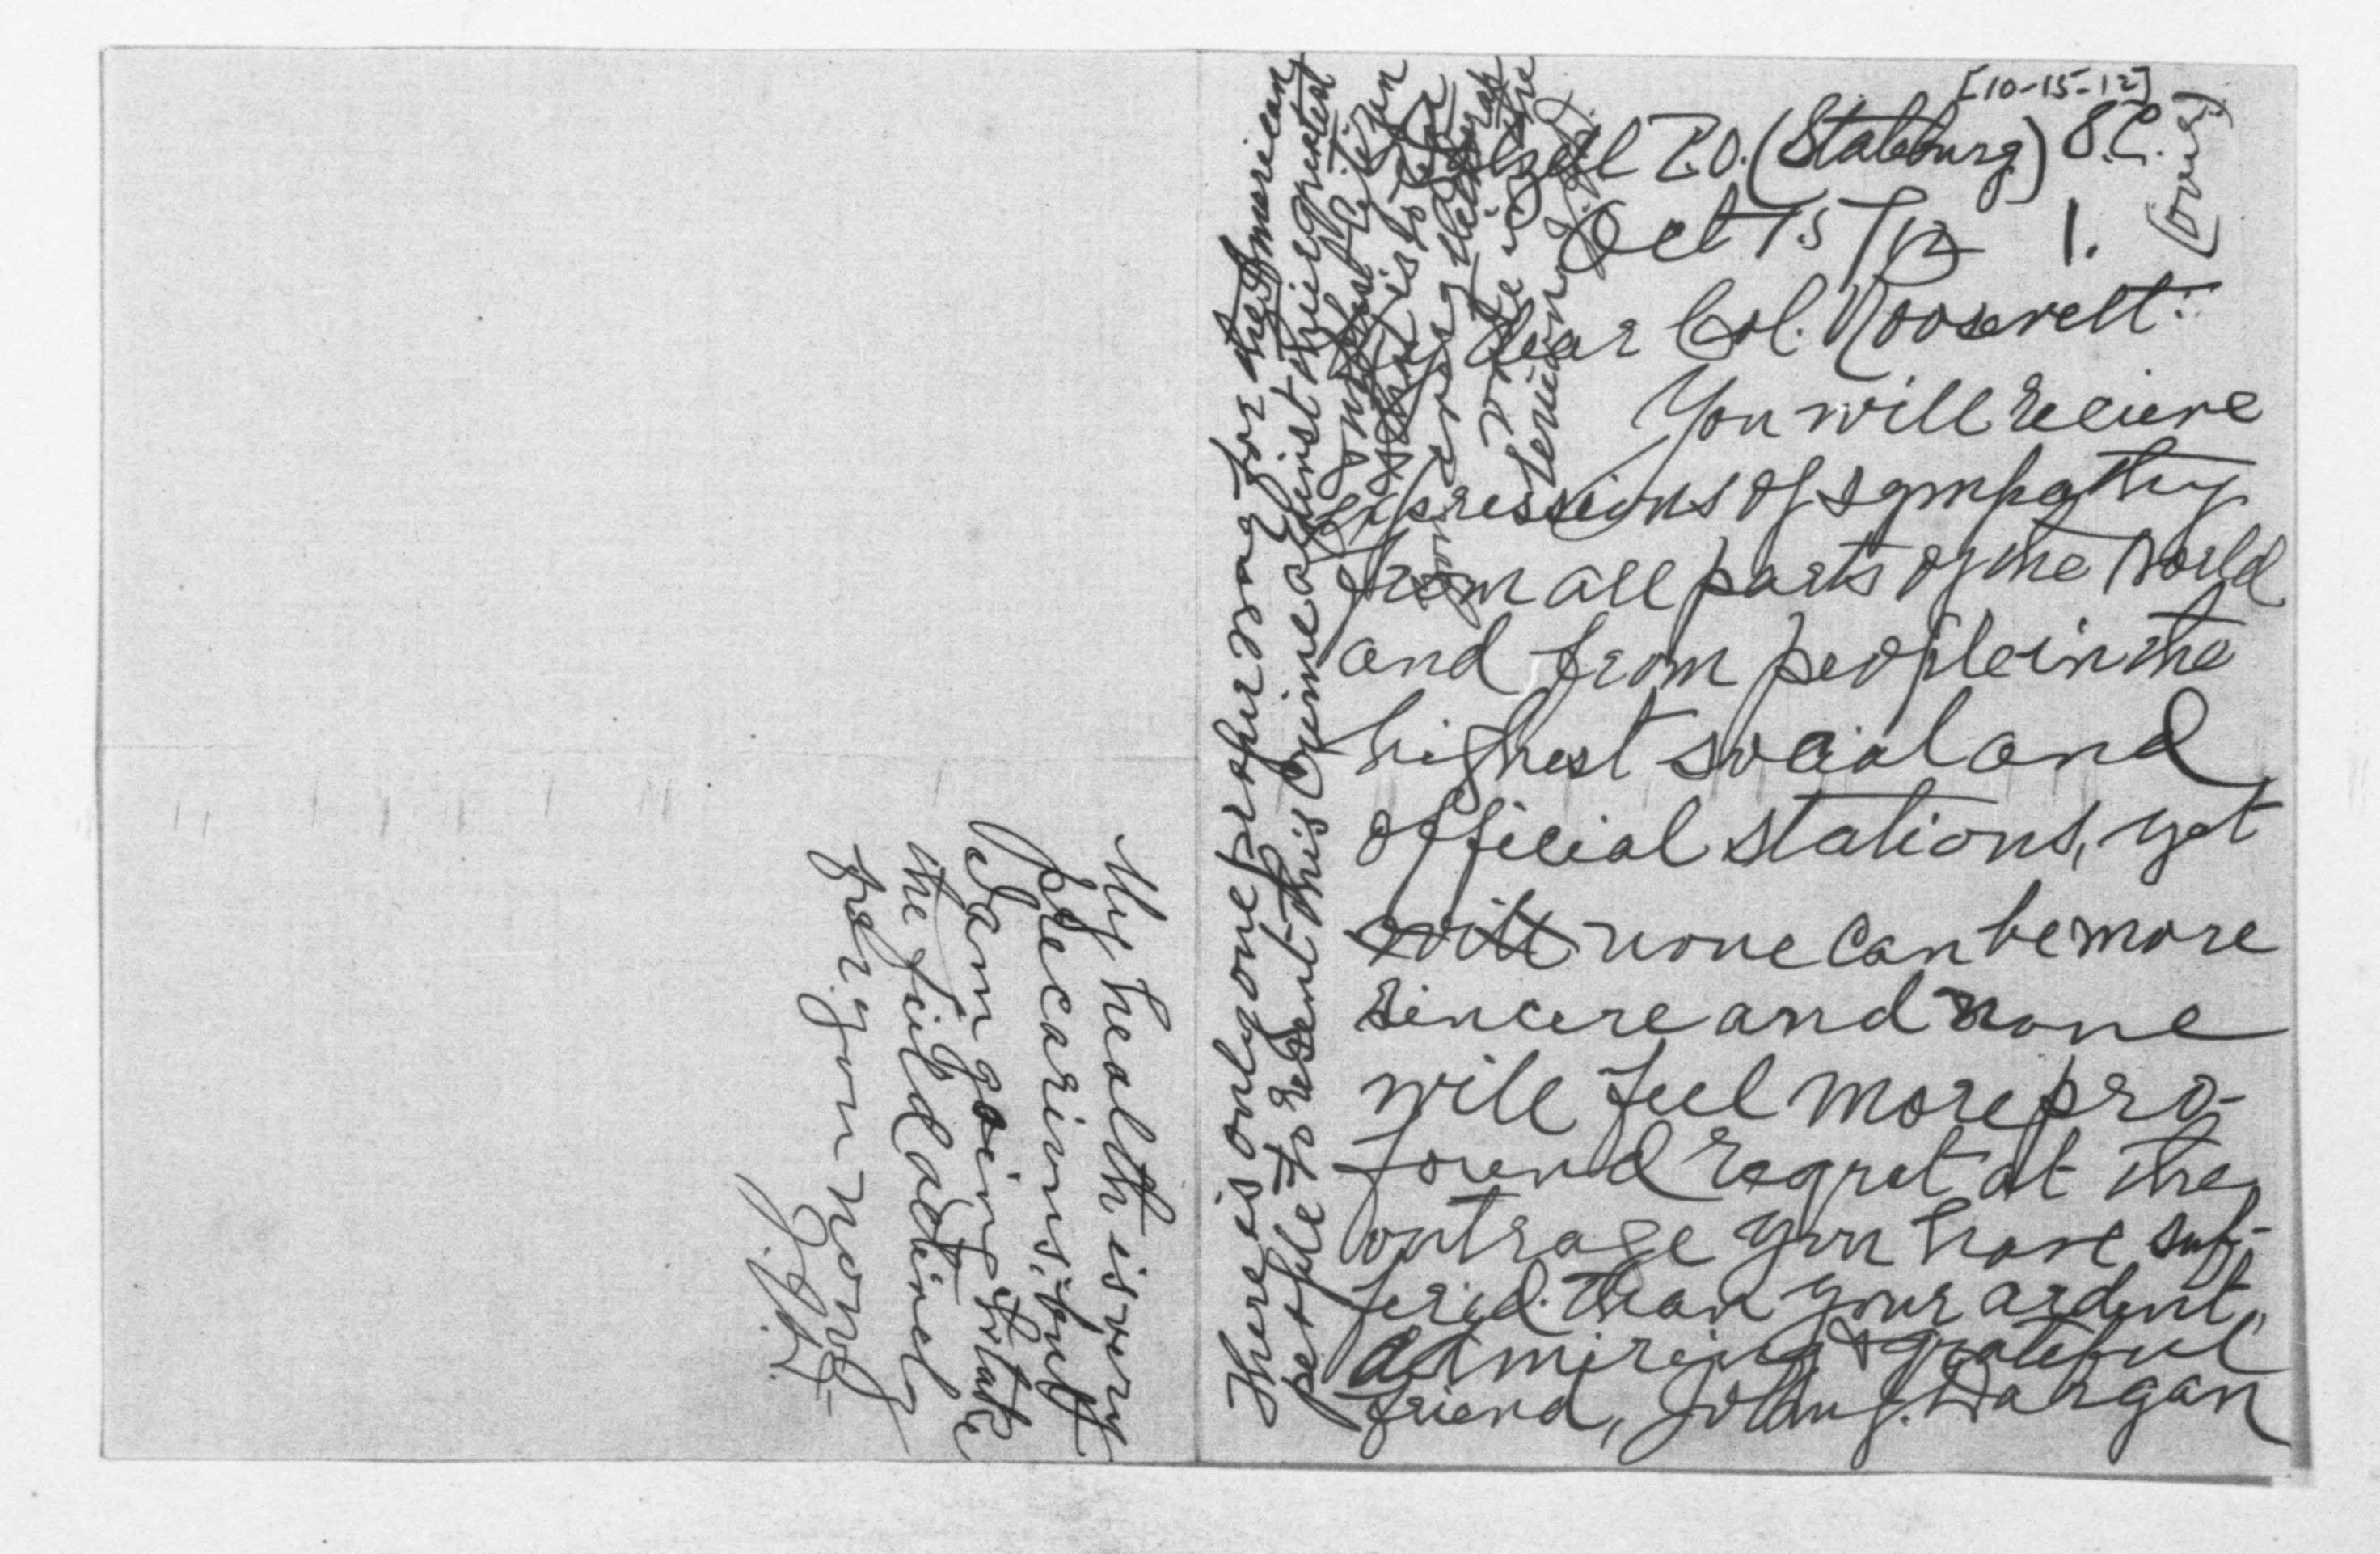 [10-15-12]
Dalzell P.O. (Stateburg) S.C.
(over)
Oct 15/12 1.
Dear Col. Roosevelt:
You will recieve
expressions of sympathy
from all parts of the world
and from people in the
highest social and
official stations, yet
will none can be more
sincere and none
will feel more pro-
found regret at the
outrage you have suf-
fered than your ardent,
admiring & grateful
friend, John J. Dargan
There is only one proper way for the American
people to resent this crime against their greatest
citizen
is to
My health is very
precarious, but
I am going to take
the field actively
for you now
J.J.D.